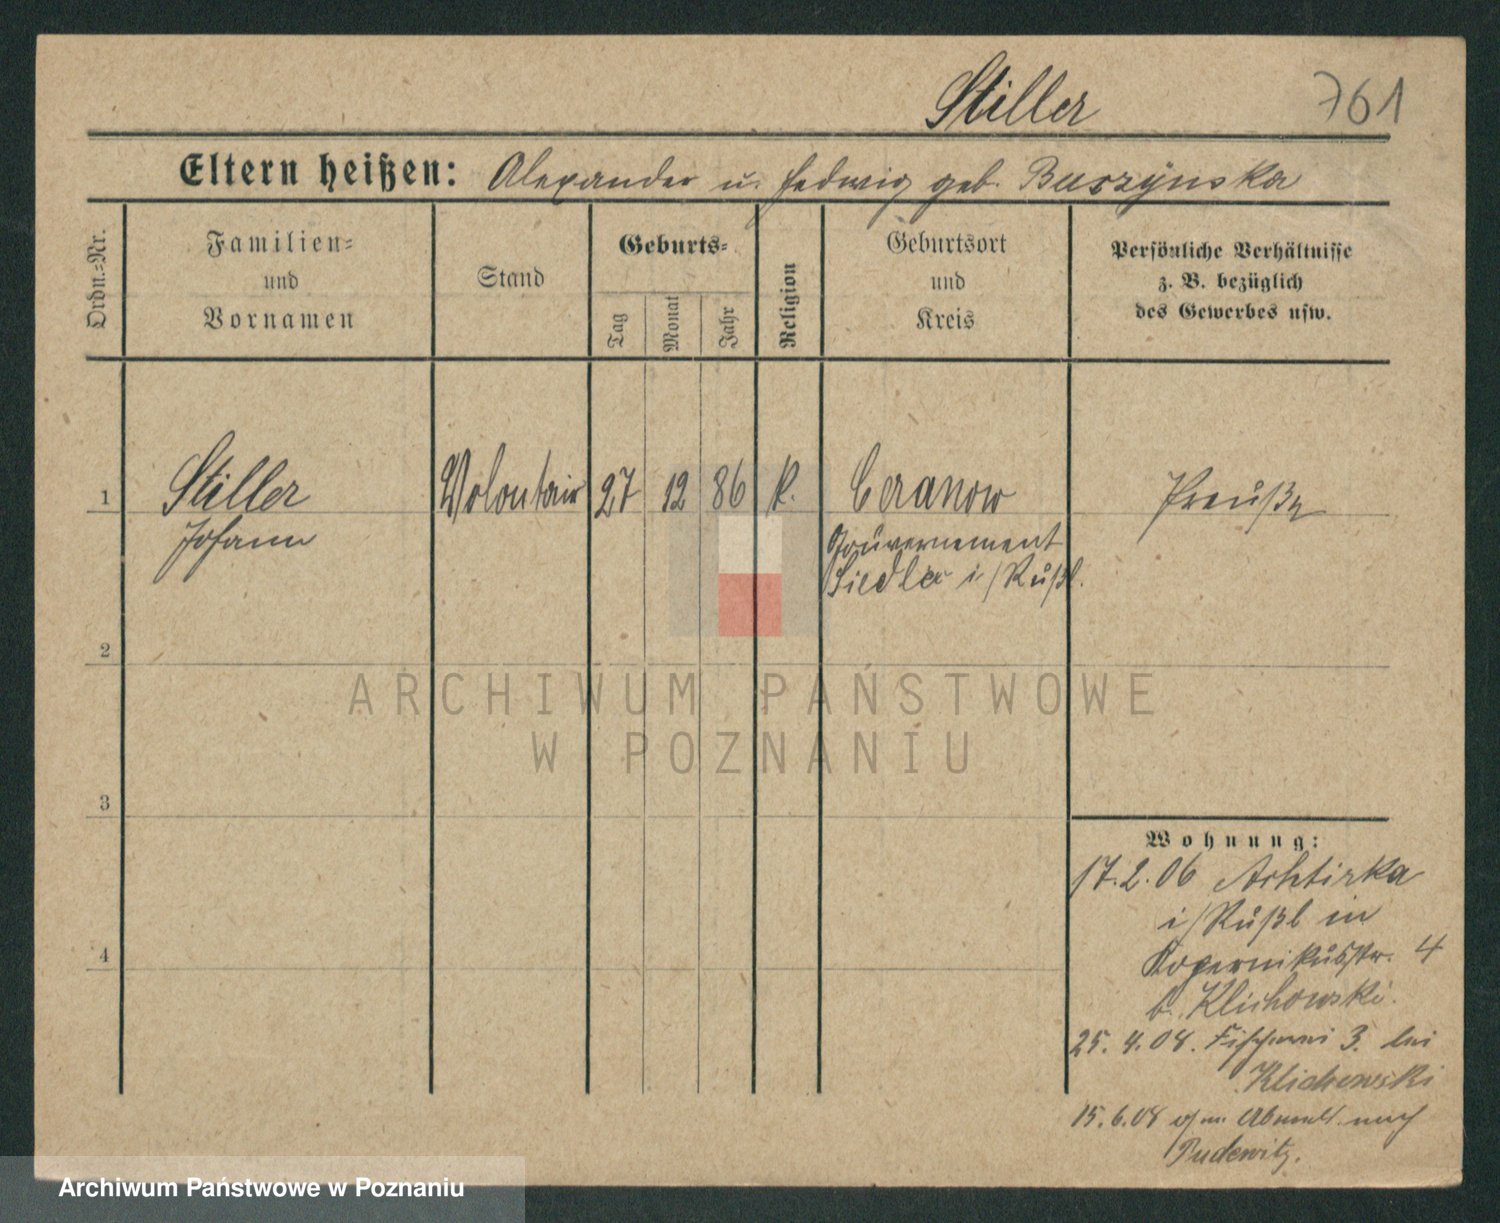 Stiller 761
Eltern heißen: Alexander u. Hedwig geb. Buszyńska
Ordn.=Nr.
Familien=
und
Vornamen
Stand
Geburts=
Tag
Monat
Jahr
Religion
Geburtsort
und
Kreis
Persönliche Verhältnisse
z. B. bezüglich
des Gewerbes usw.
1 Stiller Volontair 27 12 86 k. Ceranow Preuße
Johann
Gouvernement
Siedlce i/Rußl.
2
ARCHIWUM PAŃSTWOWE
W POZNANIU
3
4
Wohnung:
17.2.06 Achtirka
i/Rußl in
Kopernikusstr. 4
b. Klichowski.
25.4.08. Fischerei 3. bei
Klichowski
15.6.08 Abmeld. nach
Pudewitz.
Archiwum Państwowe w Poznaniu